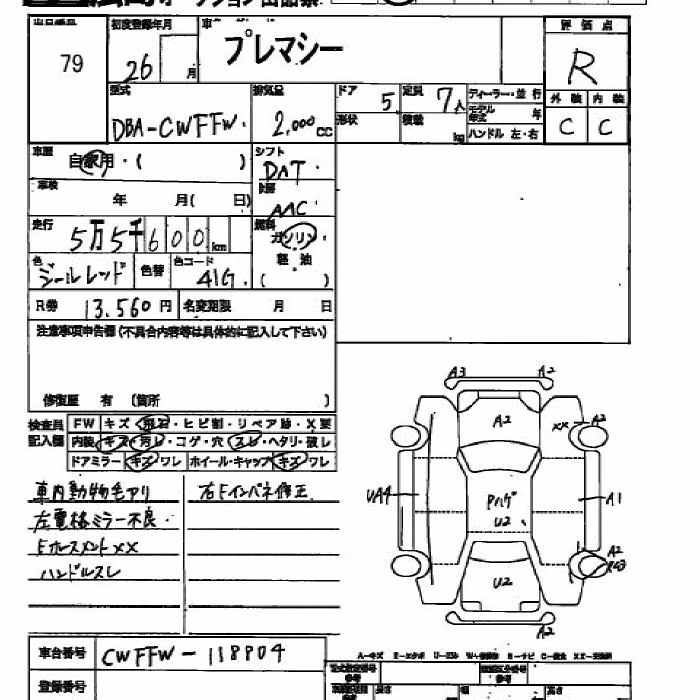 79
初度登録年月
26 月
車
プレマシー
評価点
R
外装 内装
C C
型式
DBA-CWFFW.
排気量
2,000 cc
ドア 5
定員 7人
ディーラー・並行
モデル年式 年
形状
積載 kg
ハンドル 左・右
車歴
自家用・( )
シフト
DAT.
車検
年 月( 日)
AAC.
走行
5万5千600 km
燃料
ガソリン・
軽油
( )
色
ジールレッド
色替
色コード
41G.
R券 13.560 円
名変期限 月 日
注意事項申告欄(不具合内容等は具体的に記入して下さい)
修復歴 有 (箇所 )
検査員記入欄
FW キズ・飛石・ヒビ割・リペア跡・X要
内装・キズ・汚レ・コゲ・穴・スレ・ヘタリ・破レ
ドアミラー キズ・ワレ ホイール・キャップ キズ・ワレ
車内動物毛アリ
右Fインパネ修正.
左電格ミラー不良.
Fホースメントxx
ハンドルスレ
A3 A2
A2
xx A2
UA4
Pハゲ
U2
A1
A2
U2
A2
車台番号
CWFFW-118804
登録番号